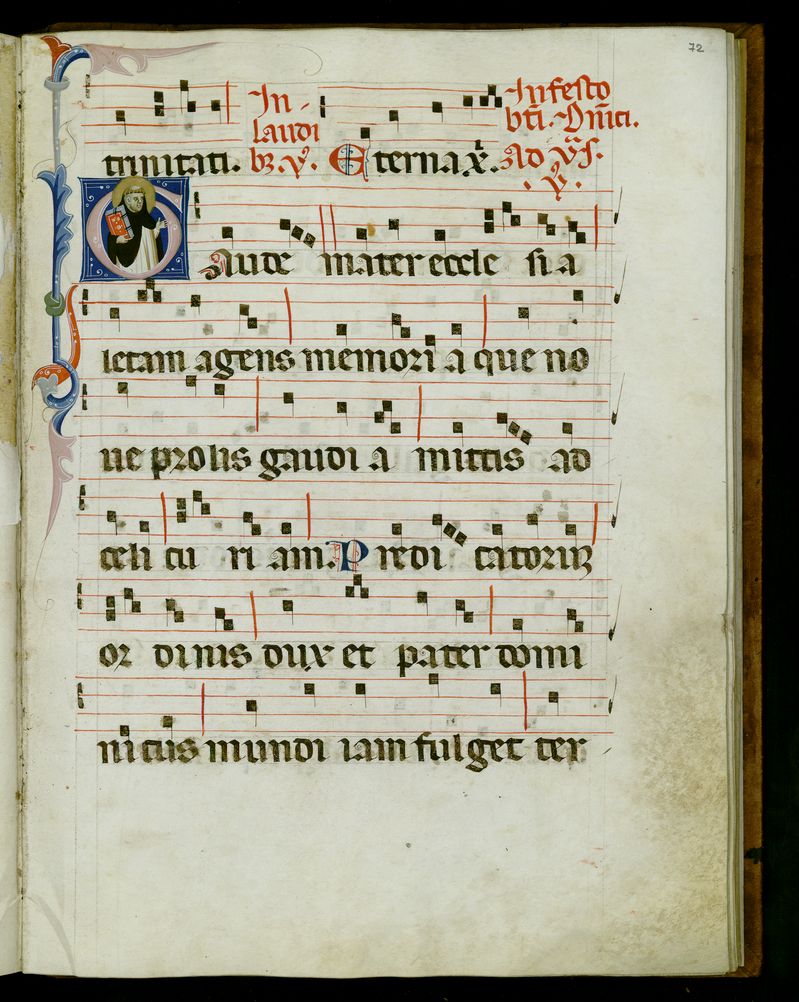 72
trinitati. In laudibꝫ. ℣. Eterna x̄.
In festo bt̄i. Dn̄ici. Ad v̄s. ℣.
Gaude mater eccle sia
letam agens memoria que no
ue prolis gaudia mittis ad
celi curiam. Predicatoruꝫ
ordinis dux et pater domi
nicus mundi iam fulget ter